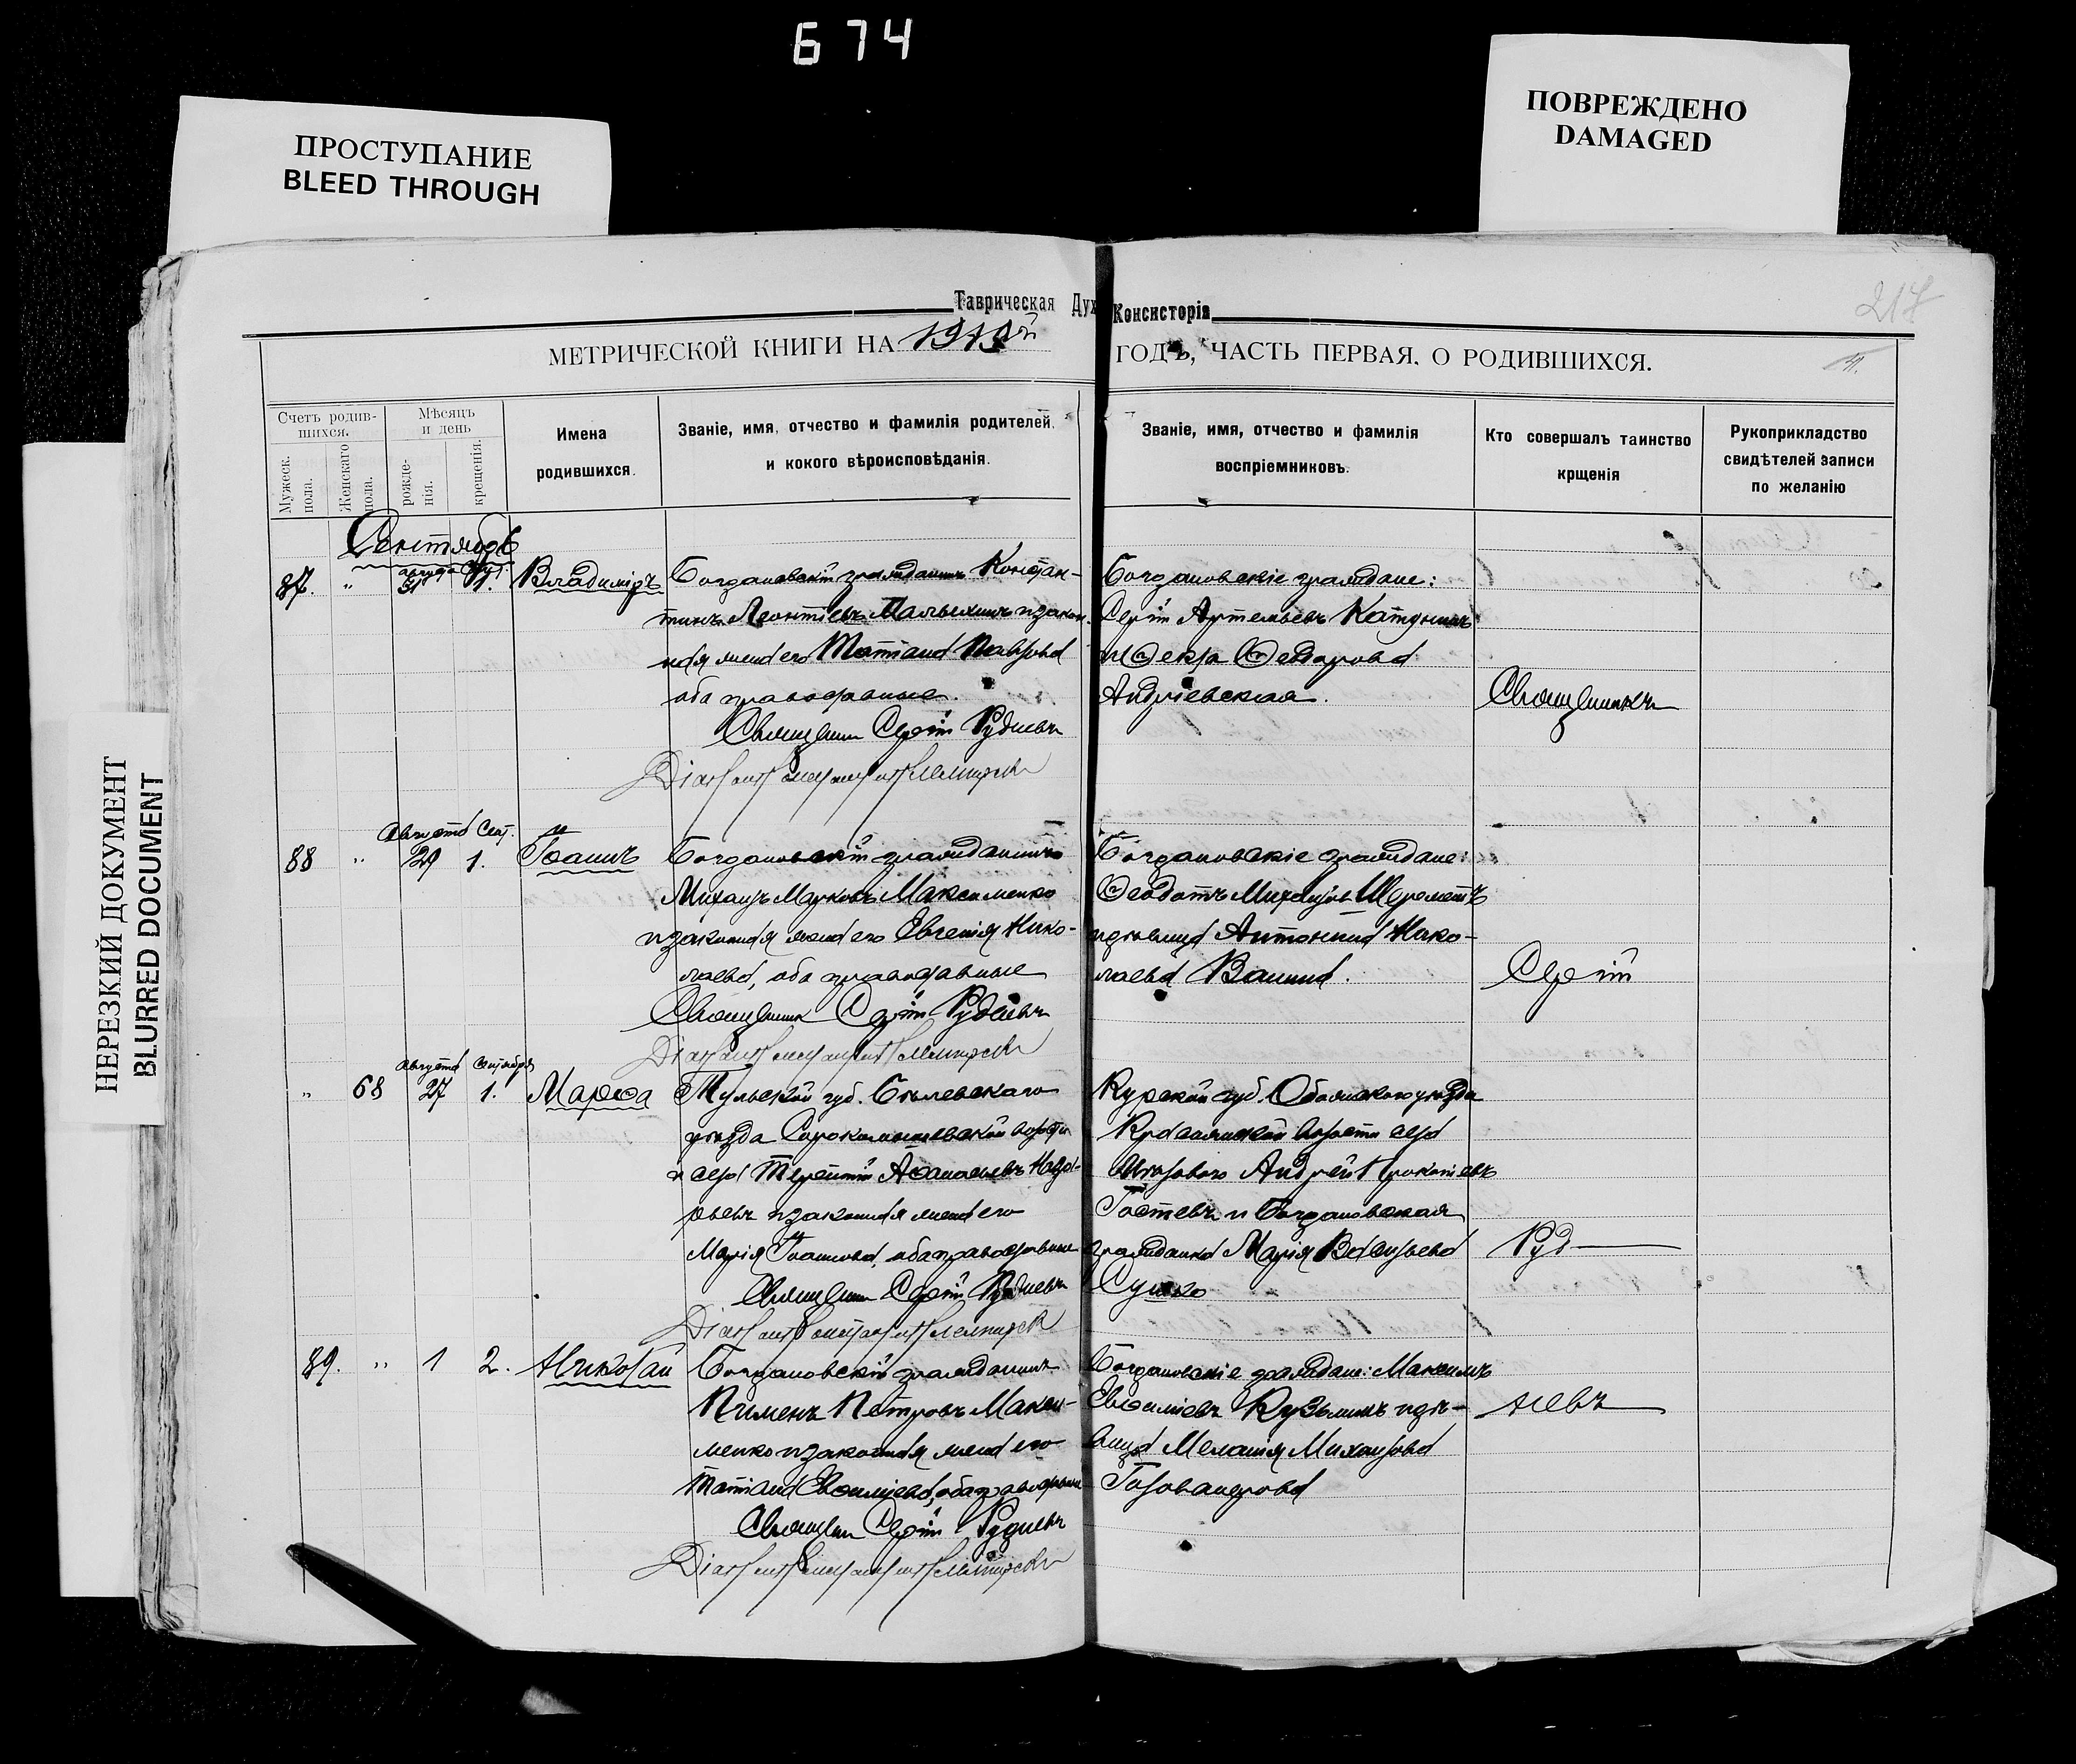 674
ПРОСТУПАНИЕ
BLEED THROUGH
ПОВРЕЖДЕНО
DAMAGED
НЕРЕЗКИЙ ДОКУМЕНТ
BLURRED DOCUMENT
217
Таврическая Дух Консисторія
МЕТРИЧЕСКОЙ КНИГИ НА 1919й ГОДЪ, ЧАСТЬ ПЕРВАЯ, О РОДИВШИХСЯ.
Счетъ родив-
шихся.
Мужеск.
пола.
Женскаго
пола.
Мѣсяцъ
и день
рожде-
нія.
крещенія.
Имена
родившихся.
Званіе, имя, отчество и фамилія родителей,
и кокого вѣроисповѣданія.
Званіе, имя, отчество и фамилія
воспріемниковъ.
Кто совершалъ таинство
крщенія
Рукоприкладство
свидѣтелей записи
по желанію
Сентябрь
87. " августа 31 Сент. 1. Владиміръ
Богдановскій гражданинъ Констан-
тинъ Леонтіевъ Малыхинъ и закон-
ная жена его Татіана Павлова
оба православные.
Священникъ Сергій Рудневъ
Богдановскіе граждане:
Сергій Артемьевъ
и Ѳекла Ѳедорова
Андріевская.
Священникъ
88 " Августа 29 Сент. 1. Іоаннъ
Богдановскій гражданинъ
Михаилъ Марковъ Максименко
и законная жена его Евгенія Нико-
лаева, оба православные
Священникъ Сергій Рудневъ
Богдановскіе граждане:
Ѳеодотъ Михайловъ Шереметъ
и дѣвица Антонина Нико-
лаева Ванина.
Сергій
" 68 Августа 27 Сентября 1. Марѳа
Тульской губ. Бѣлевскаго
уѣзда волости
села Терентій Аѳанасьевъ
и законная жена его
Марія Іоаннова, оба православные
Священникъ Сергій Рудневъ
Курской губ. Обоянскаго уѣзда
волости села
Андрей Прокопіевъ
Гостевъ и Богдановская
гражданка Марія Васильева
Руд-
89. " 1 2. Николай
Богдановскій гражданинъ
Пименъ Петровъ Макси-
менко и законная жена его
Татіана оба православные
Священникъ Сергій Рудневъ
Богдановскіе граждане: Максимъ
Евѳиміевъ Кузьминъ и дѣ-
вица Меланія Михайлова
Голованерова
невъ